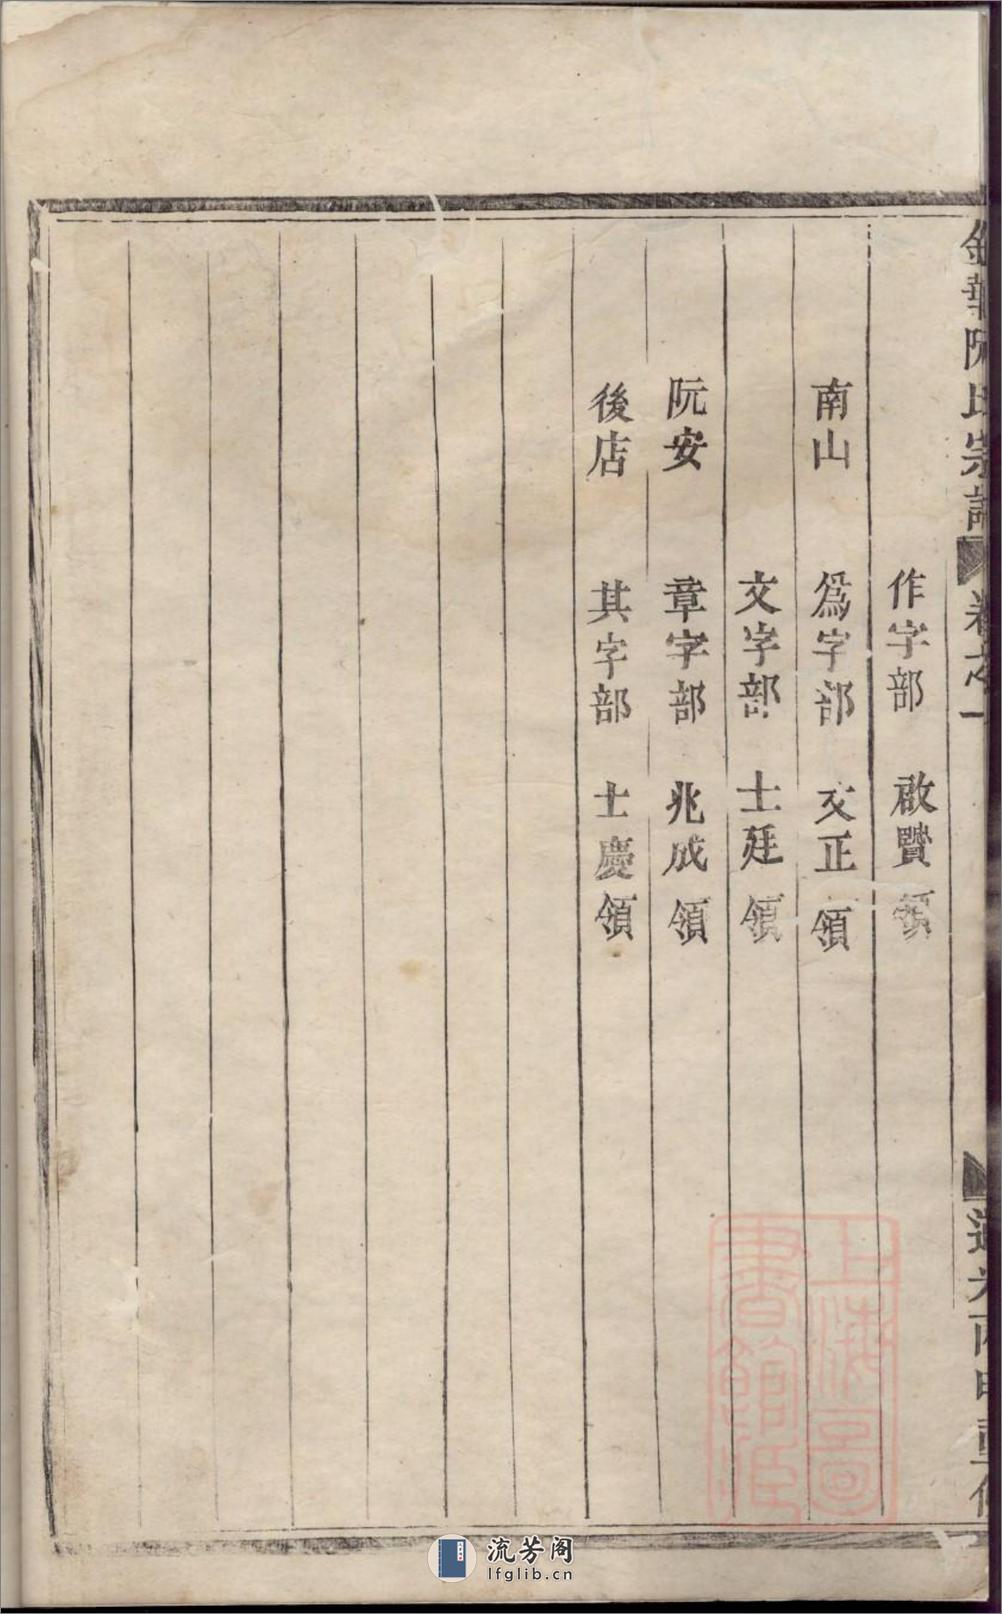 金華阮氏宗譜 卷之一 道光丙申重修
作字部 啟賢領
南山 爲字部 文正領
文字部 士廷領
阮安 章字部 兆成領
後店 其字部 士慶領
上海圖書館藏
流芳阁
lfglib.cn